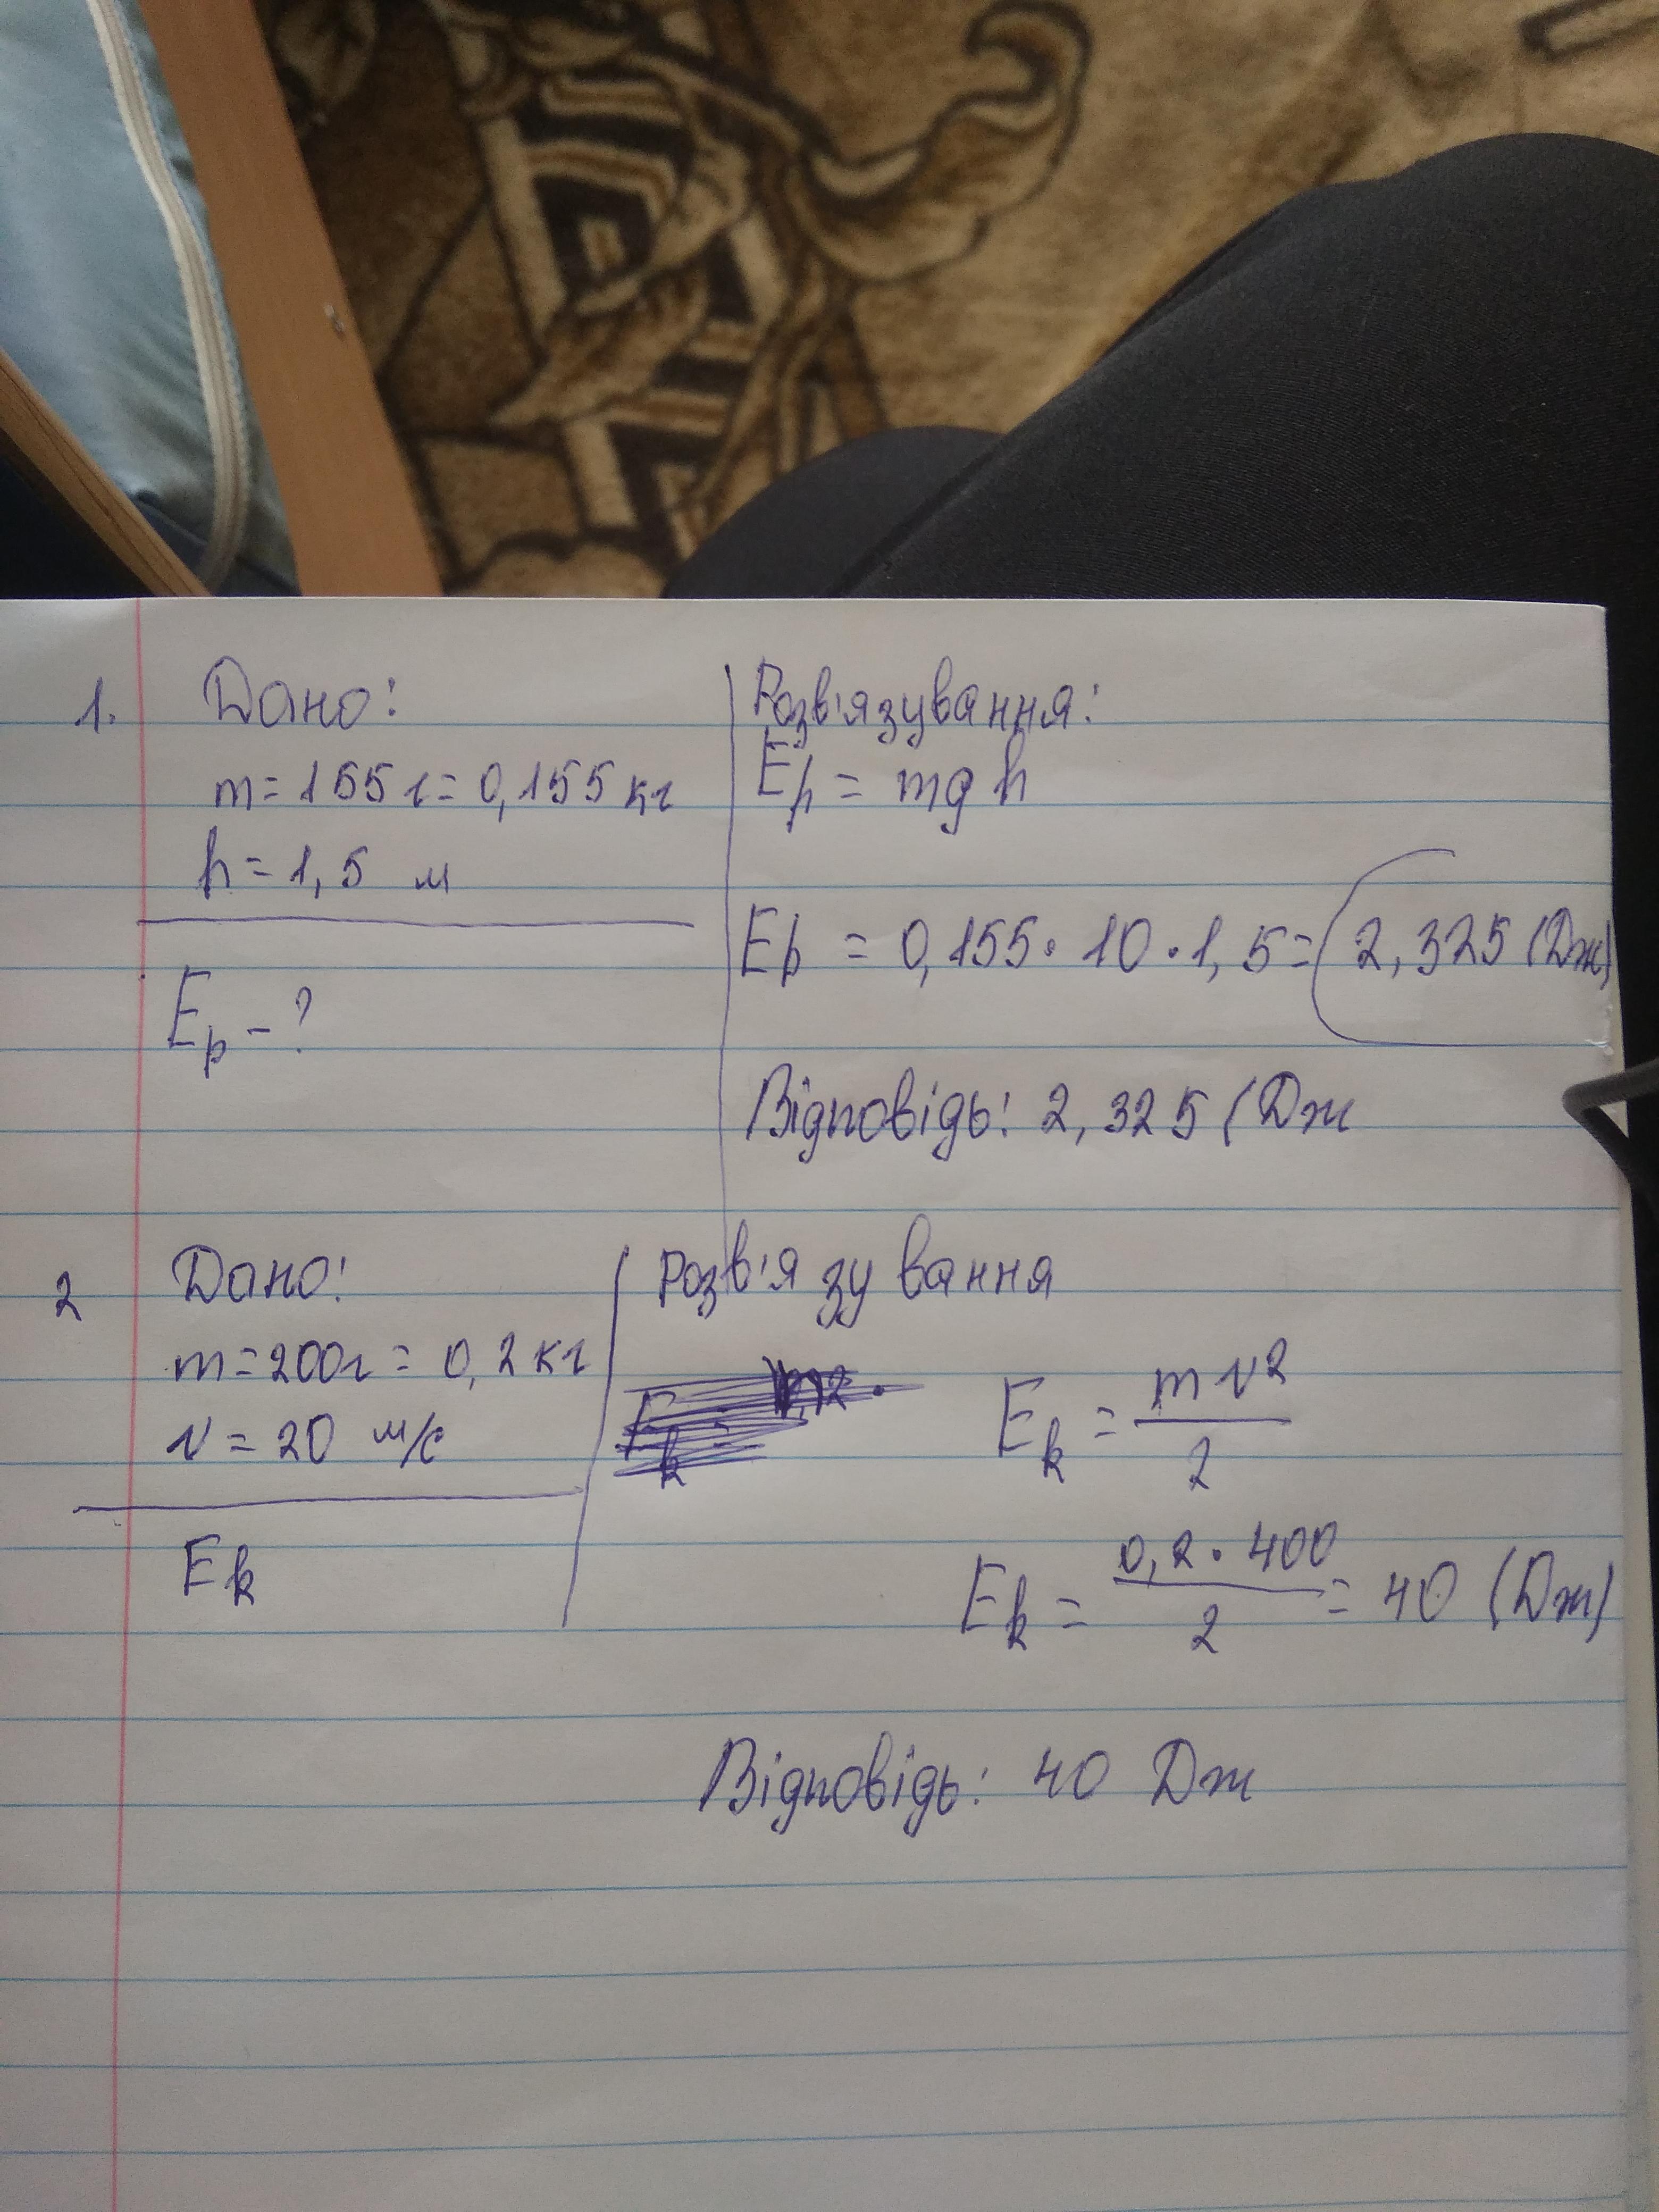 1. Дано:
m=155г=0,155кг
h=1,5 м
Ep-?
Розв'язування:
Ep = mgh
Ep = 0,155·10·1,5= 2,325 (Дж)
Відповідь: 2,325 (Дж
2 Дано:
m=200г= 0,2кг
v=20 м/с
Ek
Розв'язування
Ek = mv²/2
Ek = 0,2·400/2 = 40 (Дж)
Відповідь: 40 Дж